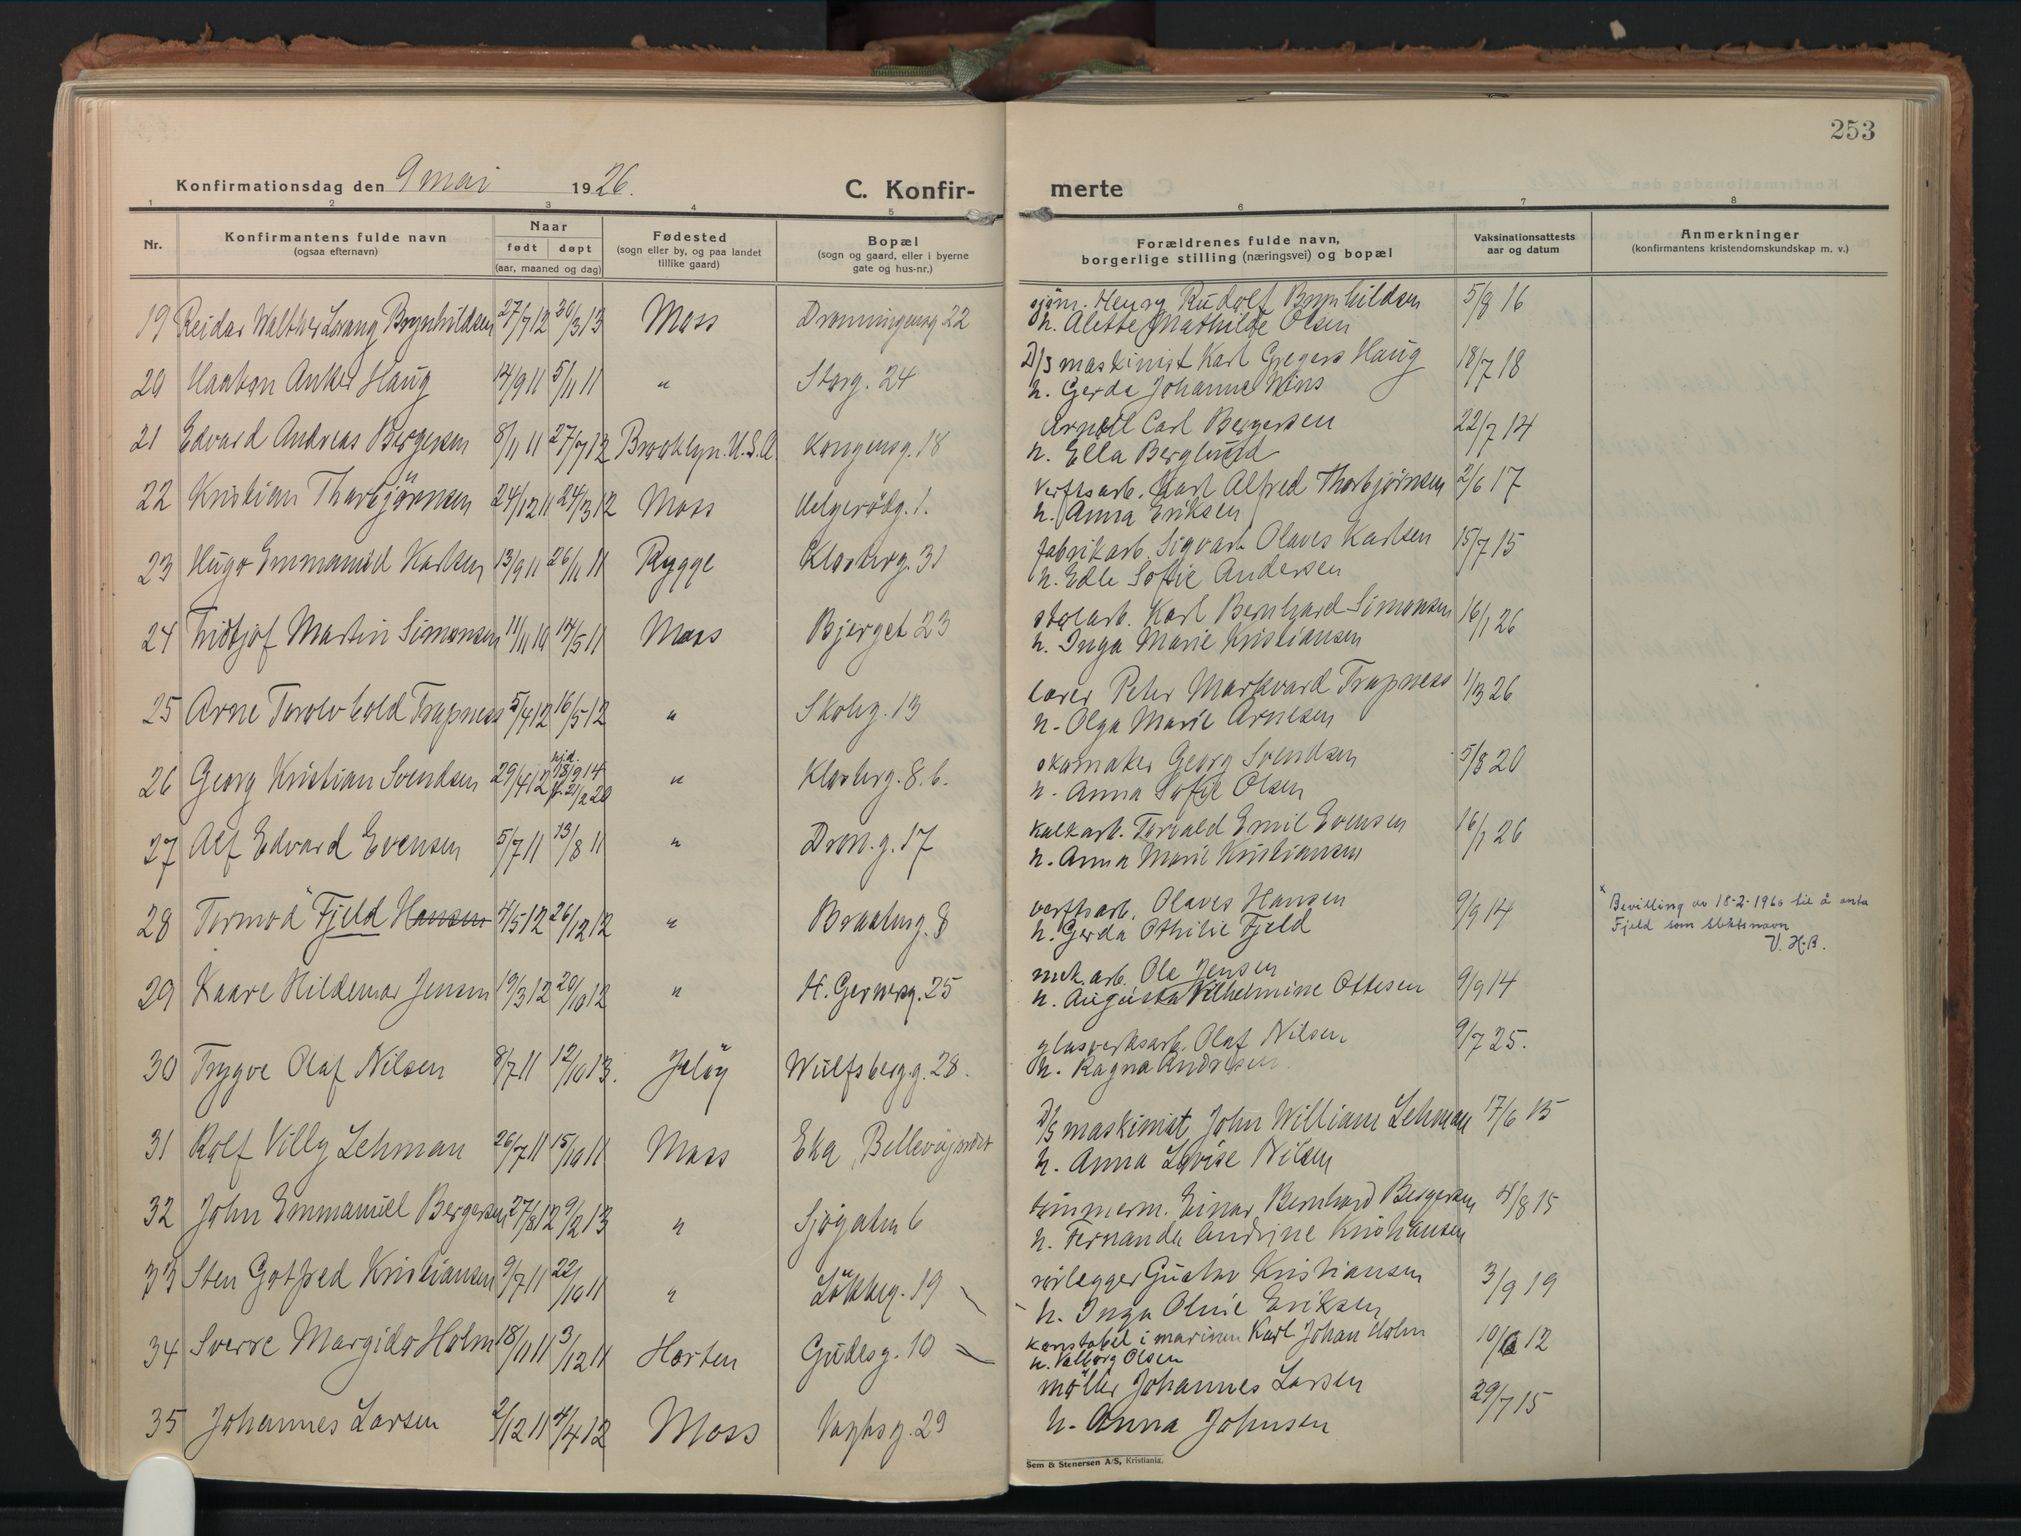 253
Konfirmationsdag den 9 mai 1926. C. Konfir- merte
1 2 3 4 5 6 7 8
Nr. Konfirmantens fulde navn (ogsaa efternavn) Naar født døpt (aar, maaned og dag) Fødested (sogn eller by, og paa landet tillike gaard) Bopæl (sogn og gaard, eller i byerne gate og hus-nr.) Forældrenes fulde navn, borgerlige stilling (næringsvei) og bopæl Vaksinationsattests aar og datum Anmerkninger (konfirmantens kristendomskundskap m. v.)
19 Reidar Walther Brynhildsen 27/7 12 30/3 13 Moss Dronningensg 22 sjøm. Henry Rudolf Brynhildsen 5/8 16
h. Alette Mathilde Olsen
20 Haakon Anker Haug 14/9 11 5/11 11 " Storg. 24 D/S maskinist Karl Gregers Haug 18/7 18
h. Gerda Johanne
21 Edvard Andreas Bergersen 8/11 11 27/7 12 Brooklyn. U.S.A. Kongensg. 18 Carl Bergersen 22/7 14
h. Ella Berglund
22 Kristian Thorbjørnsen 24/12 11 24/3 12 Moss Helgerödg. 1. verftsarb. Karl Alfred Thorbjørnsen 2/6 17
h. Anna Eriksen
23 Hugo Emmanuel Karlsen 13/9 11 26/11 11 Rygge Klosterg. 31 fabrikarb. Sigvart Olaves Karlsen 15/7 15
h. Edle Sofie Andersen
24 Fridtjof Martin Simonsen 11/11 10 14/5 11 Moss Bjerget 23 Karl Bernhard Simonsen 16/1 26
h. Inga Marie Kristiansen
25 Arne Torolv Trapness 5/4 12 16/5 12 " Skolg. 13 lærer Peter Markvard Trapness 1/3 26
h. Olga Marie Arnesen
26 Georg Kristian Svendsen 29/4 12 hj.d. 18/9 14 " Klosterg. 8. b. skomaker Georg Svendsen 5/8 20
fr. 21/2 20 h. Anna Sofie Olsen
27 Alf Edvard Evensen 5/7 11 13/8 11 " Dron.g. 17 kalkarb. Torvald Emil Evensen 16/1 26
h. Anna Marie Kristiansen
28 Tormod x Fjeld Hansen 4/5 12 26/12 12 " Braateng. 8 verftsarb. Olaves Hansen 9/9 14 x Bevilling av 18-2-1960 til å anta
h. Gerda Othilie Fjeld Fjeld som slektsnavn
V. H-B.
29 Kaare Hildemar Jensen 19/3 12 20/10 12 " H. Gernersg. 25 mek. arb. Ole Jensen 9/9 14
h. Augusta Vilhelmine Ottesen
30 Trygve Olaf Nilsen 8/7 11 12/10 13. Jeløy Wulfsberg.g. 28. glasverksarb. Olaf Nilsen 9/7 25.
h. Ragna Andresen
31 Rolf Villy Lehman 26/7 11 15/10 11 Moss Eka, D/S maskinist John William Lehman 17/6 15
h. Anna Lovise Nilsen
32 John Emmanuel Bergersen 27/8 12 9/2 13 " Sjøgaten 6 tømmerm. Einar Bernhard Bergersen 4/8 15
h. Fernanda Andrine Kristiansen
33 Sten Gotfred Kristiansen 9/7 11 22/10 11 " Løkkeg. 19 rørlegger Gustav Kristiansen 3/9 19
h. Inga Olivie Eriksen
34 Sverre Margido Holm 18/11 11 3/12 11 Horten Gudesg. 10 konstabel i marinen Karl Johan Holm 10/6 12
h. Valborg Olsen
35 Johannes Larsen 2/12 11 4/4 12 Moss Vogtsg. 29 møller Johannes Larsen 29/7 15
h. Anna Johnsen
Sem & Stenersen A/S, Kristiania.